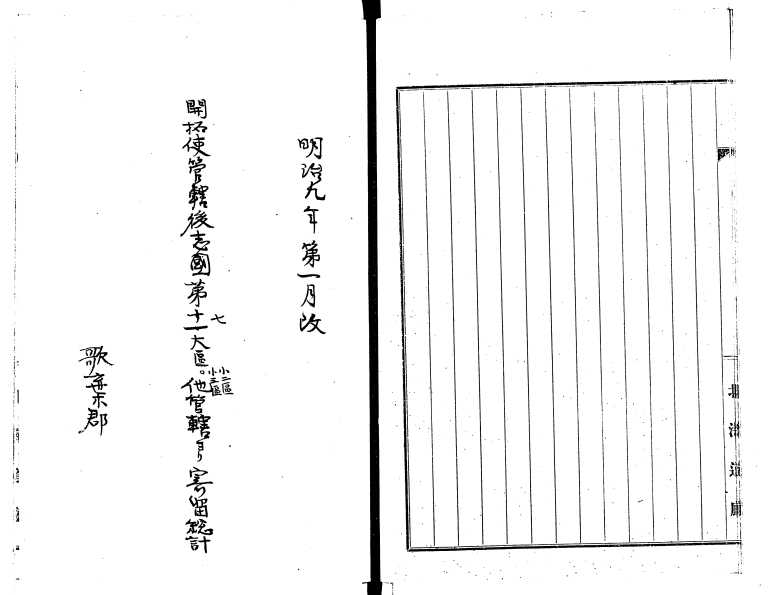 北海道廳
明治九年第一月改
開拓使管轄後志國第十一七大區小二區小三區。他管轄ヨリ寄留総計
歌棄郡